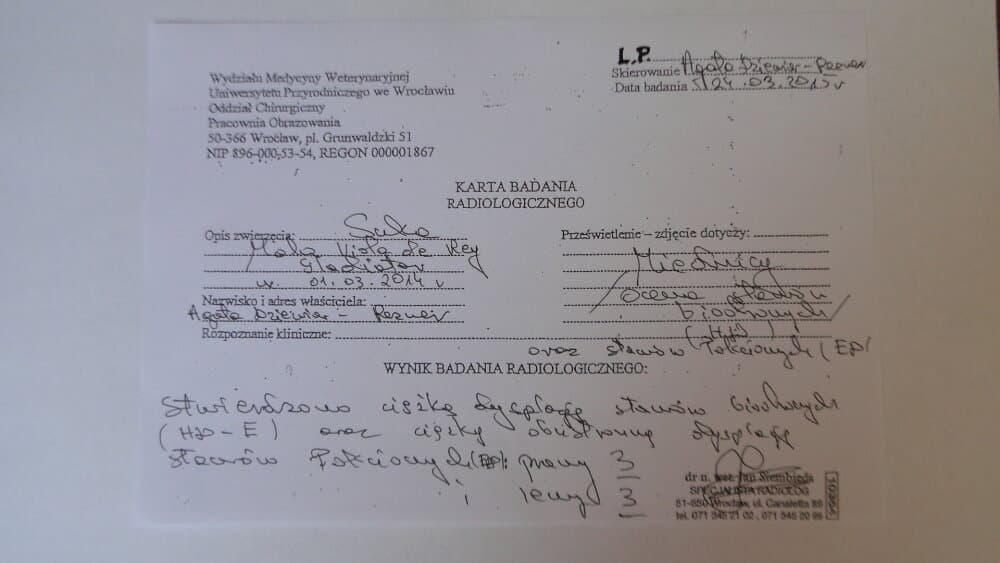 L.P.
Skierowanie Agata Dziewiar - Pezner
Data badania 24.03.2015 r
Wydziału Medycyny Weterynaryjnej
Uniwersytetu Przyrodniczego we Wrocławiu
Oddział Chirurgiczny
Pracownia Obrazowania
50-366 Wrocław, pl. Grunwaldzki 51
NIP 896-000-53-54, REGON 000001867
KARTA BADANIA
RADIOLOGICZNEGO
Opis zwierzęcia: Suka
de Rey
Gladiator
ur. 01.03.2014 r
Prześwietlenie – zdjęcie dotyczy:
Miednicy
ocena stawów
biodrowych
(HD) i
Nazwisko i adres właściciela:
Agata
Rozpoznanie kliniczne:
oraz stawów łokciowych (ED)
WYNIK BADANIA RADIOLOGICZNEGO:
Stwierdzono ciężką dysplazję stawów biodrowych
(HD-E) oraz ciężką obustronną dysplazję
stawów łokciowych (ED): prawy 3
i lewy 3
dr n. wet. Jan Siembieda
SPECJALISTA RADIOLOG
51-650 Wrocław, ul. Canaletta 89
tel. 071 345 21 02, 071 345 20 98